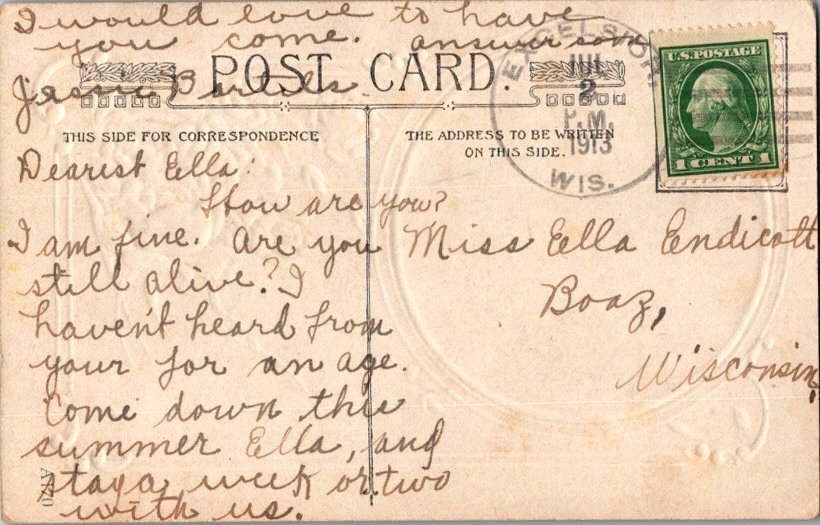 I would love to have
you come. answer soon
Jessie Bartels
POST CARD.
THIS SIDE FOR CORRESPONDENCE
THE ADDRESS TO BE WRITTEN
ON THIS SIDE.
EXCELSIOR,
JUL
2
P.M.
1913
WIS.
U.S. POSTAGE
1 CENT 1
Dearest Ella:
How are you?
I am fine. Are you
still alive? I
haven't heard from
your for an age.
Come down this
summer Ella, and
stay a week or two
with us.
Miss Ella Endicott
Boaz,
Wisconsin,